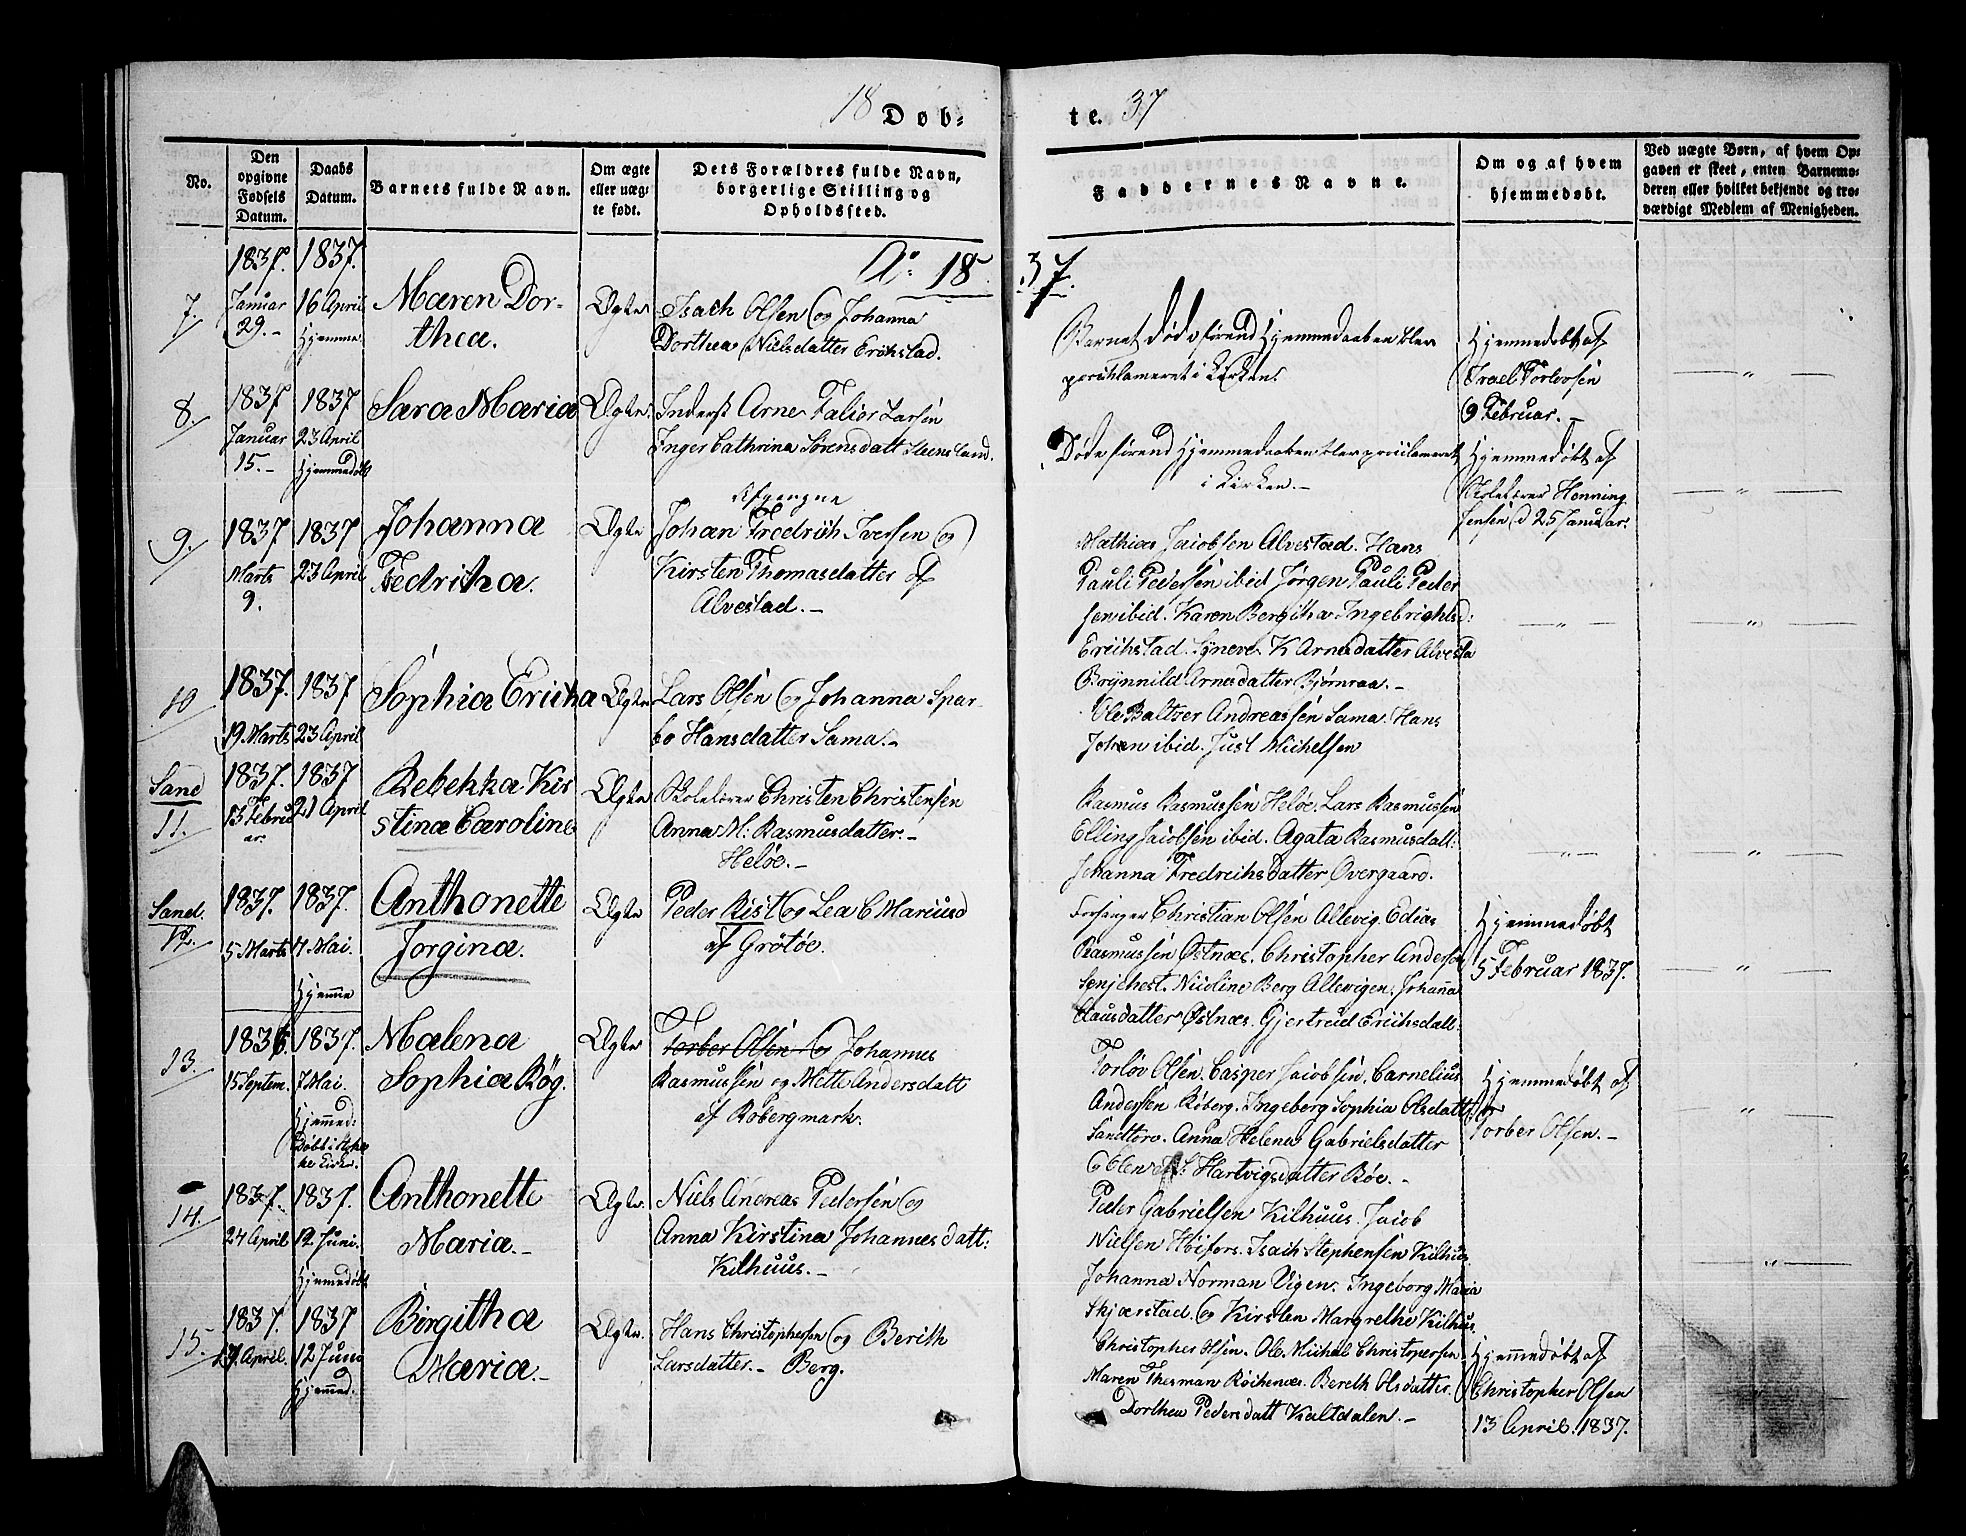 18 Døb- te. 37
No.
Den opgivne Fødsels Datum.
Daabs Datum.
Barnets fulde Navn.
Om ægte eller uæg- te født.
Dets Forældres fulde Navn, borgerlige Stilling og Opholdssted.
Faddernes Navne.
Om og af hvem hjemmedøbt.
Ved uægte Børn, af hvem Op- gaven er skeet, enten Barnemo- deren eller hvilket bekjendt og tro- værdigt Medlem af Menigheden.
Ao 18 37.
7.
1837. Januar 29.
1837. 16 April Hjemme
Maren Dor-
thea.
Ægte
Isach Olsen og Johanna
Dorthea Nielsdatter Erikstad.
Barnet døde førend Hjemmedaaben blev
proclameret i Kirken.
Hjemmedøbt af
Israel Torlovsen
9 Februar.
8.
1837 Januar 15.
1837 23 April Hjemmedøbt
Sara Maria
Ægte
Inderst Arne Falior Larsen
Inger Cathrina Sørensdatt Steensland.
Døde førend Hjemmedaaben blev proclameret
i Kirken.
Hjemmedøbt af
Skolelærer Henning
Jensen d 25 Januar.
9.
1837 Marts 9.
1837 23 April
Johanna
Fedricha.
Ægte
Afgangne
Johan Fredrich Iversen og
Kirsten Thomasdatter af
Alvestad.
Mathias Jacobsen Alvestad. Hans
Pauli Pedersen ibid Jørgen Pauli Peder
sen ibid. Karen Bergitha Ingebrigtsd:
Erichstad. Syneve K Arnedatter Alvesta
Brynnild Arnesdatter Bjørnraa.
10
1837. 19 Marts
1837 23 April
Sophia Ericha
Ægte
Lars Olsen og Johanna Spar-
bo Hansdatter Sama.
Ole Baltzer Andreassen Sama. Hans
Johan ibid. Just Michelsen
Sand
11.
1837. 13 Februar.
1837 21 April
Rebekka Kir
stina Caroline
Ægte
Skolelærer Christen Christensen
Anna M: Rasmusdatter.
Heløe.
Rasmus Rasmussen Heløe. Lars Rasmussen
Elling Jacobsen ibid. Agata Rasmusdatt:
Johanna Fredreihsdatter Overgaard.
Sand.
12.
1837. 5 Marts
1837. 4 Mai. Hjemme
Anthonette
Jorgina.
Ægte
Peder Rist og Lea C Marcusd
af Grötöe.
Forsanger Christian Olsen Altevig. Edias
Rasmussen Østnæs. Christopher Anderse
Senjehest. Nicoline Berg Altevigen. Johanna
Clausdatter Østnæs. Gjertrud Erichsdatt:
Hjemmedøbt
5 Februar 1837.
13.
1836. 15 Septem.
1837. 7 Mai. Hjemmed:
Malena
Sophia Røg.
Ægte
Torber Olsen og Johannes
Rasmussen og Mette Andersdatt
af Røbergmark.
Torlov Olsen. Casper Jacobsen. Carnelius
Andersen Röberg. Ingeborg Sophia Olsdatt
Sandtorv. Anna Helena Gabrielsdatter
Hartvigsdatter Böe.
Hjemmedøbt af
Torber Olsen.
14.
1837. 24 April
1837. 12 Juni. Hjemmedøbt
Anthonette
Maria.
Ægte
Niels Andreas Pedersen og
Anna Kirstina Johannesdatt:
Kilhuus.
Peder Gabrielsen Kilhuus. Jacob
Nielsen Høifors. Isach Stephensen Kilhus
Johanna Norman Vigen. Ingeborg Maria
Skjærstad. og Kirsten Margrethe Kilhus
15.
1837. April.
1837 12 Juni Hjemmed.
Birgitha
Maria.
Ægte
Hans Christophersen og Berith
Larsdatter. Berg.
Christopher Olsen. Ole Michal Christophersen
Maren Thesman Röchenæs. Bereth Olsdatter.
Dorthea Pedersdatt Kaltdalen.
Hjemmedøbt af
Christopher Olsen
13 April. 1837.